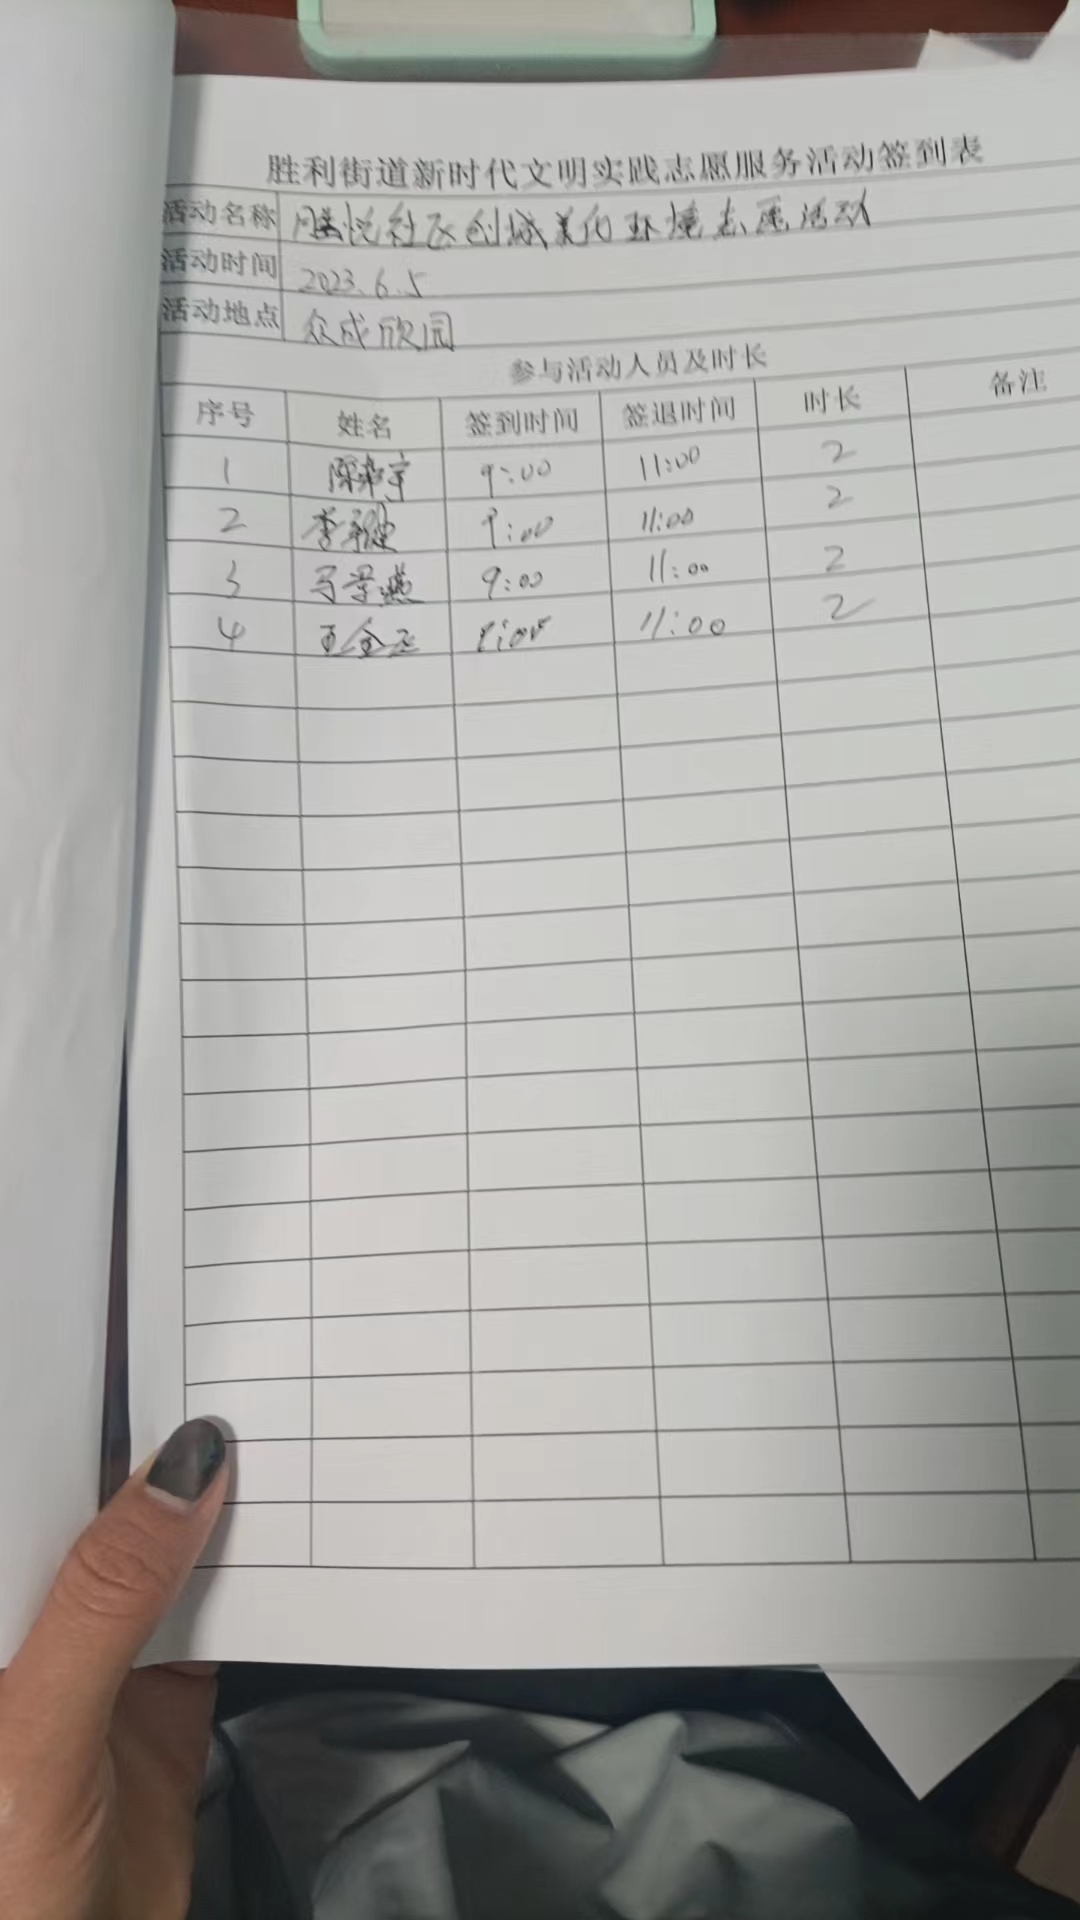 胜利街道新时代文明实践志愿服务活动签到表
活动名称 悦社区创城美化环境志愿活动
活动时间 2023.6.5
活动地点 众成欣园
参与活动人员及时长
序号 姓名 签到时间 签退时间 时长 备注
1 陈宇 9:00 11:00 2
2 李健 9:00 11:00 2
3 马景燕 9:00 11:00 2
4 王金 11:00 2